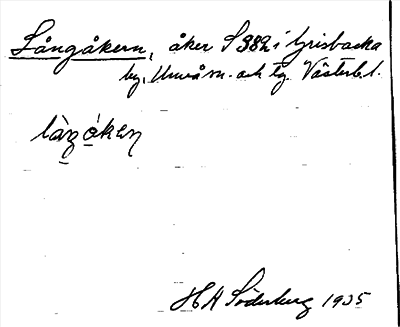 Långåkern, åker S 382 i Grisbacka
by, Umeå sn. och tg. Västerb. l.
làŋ ó̀ken
H A Söderberg 1935